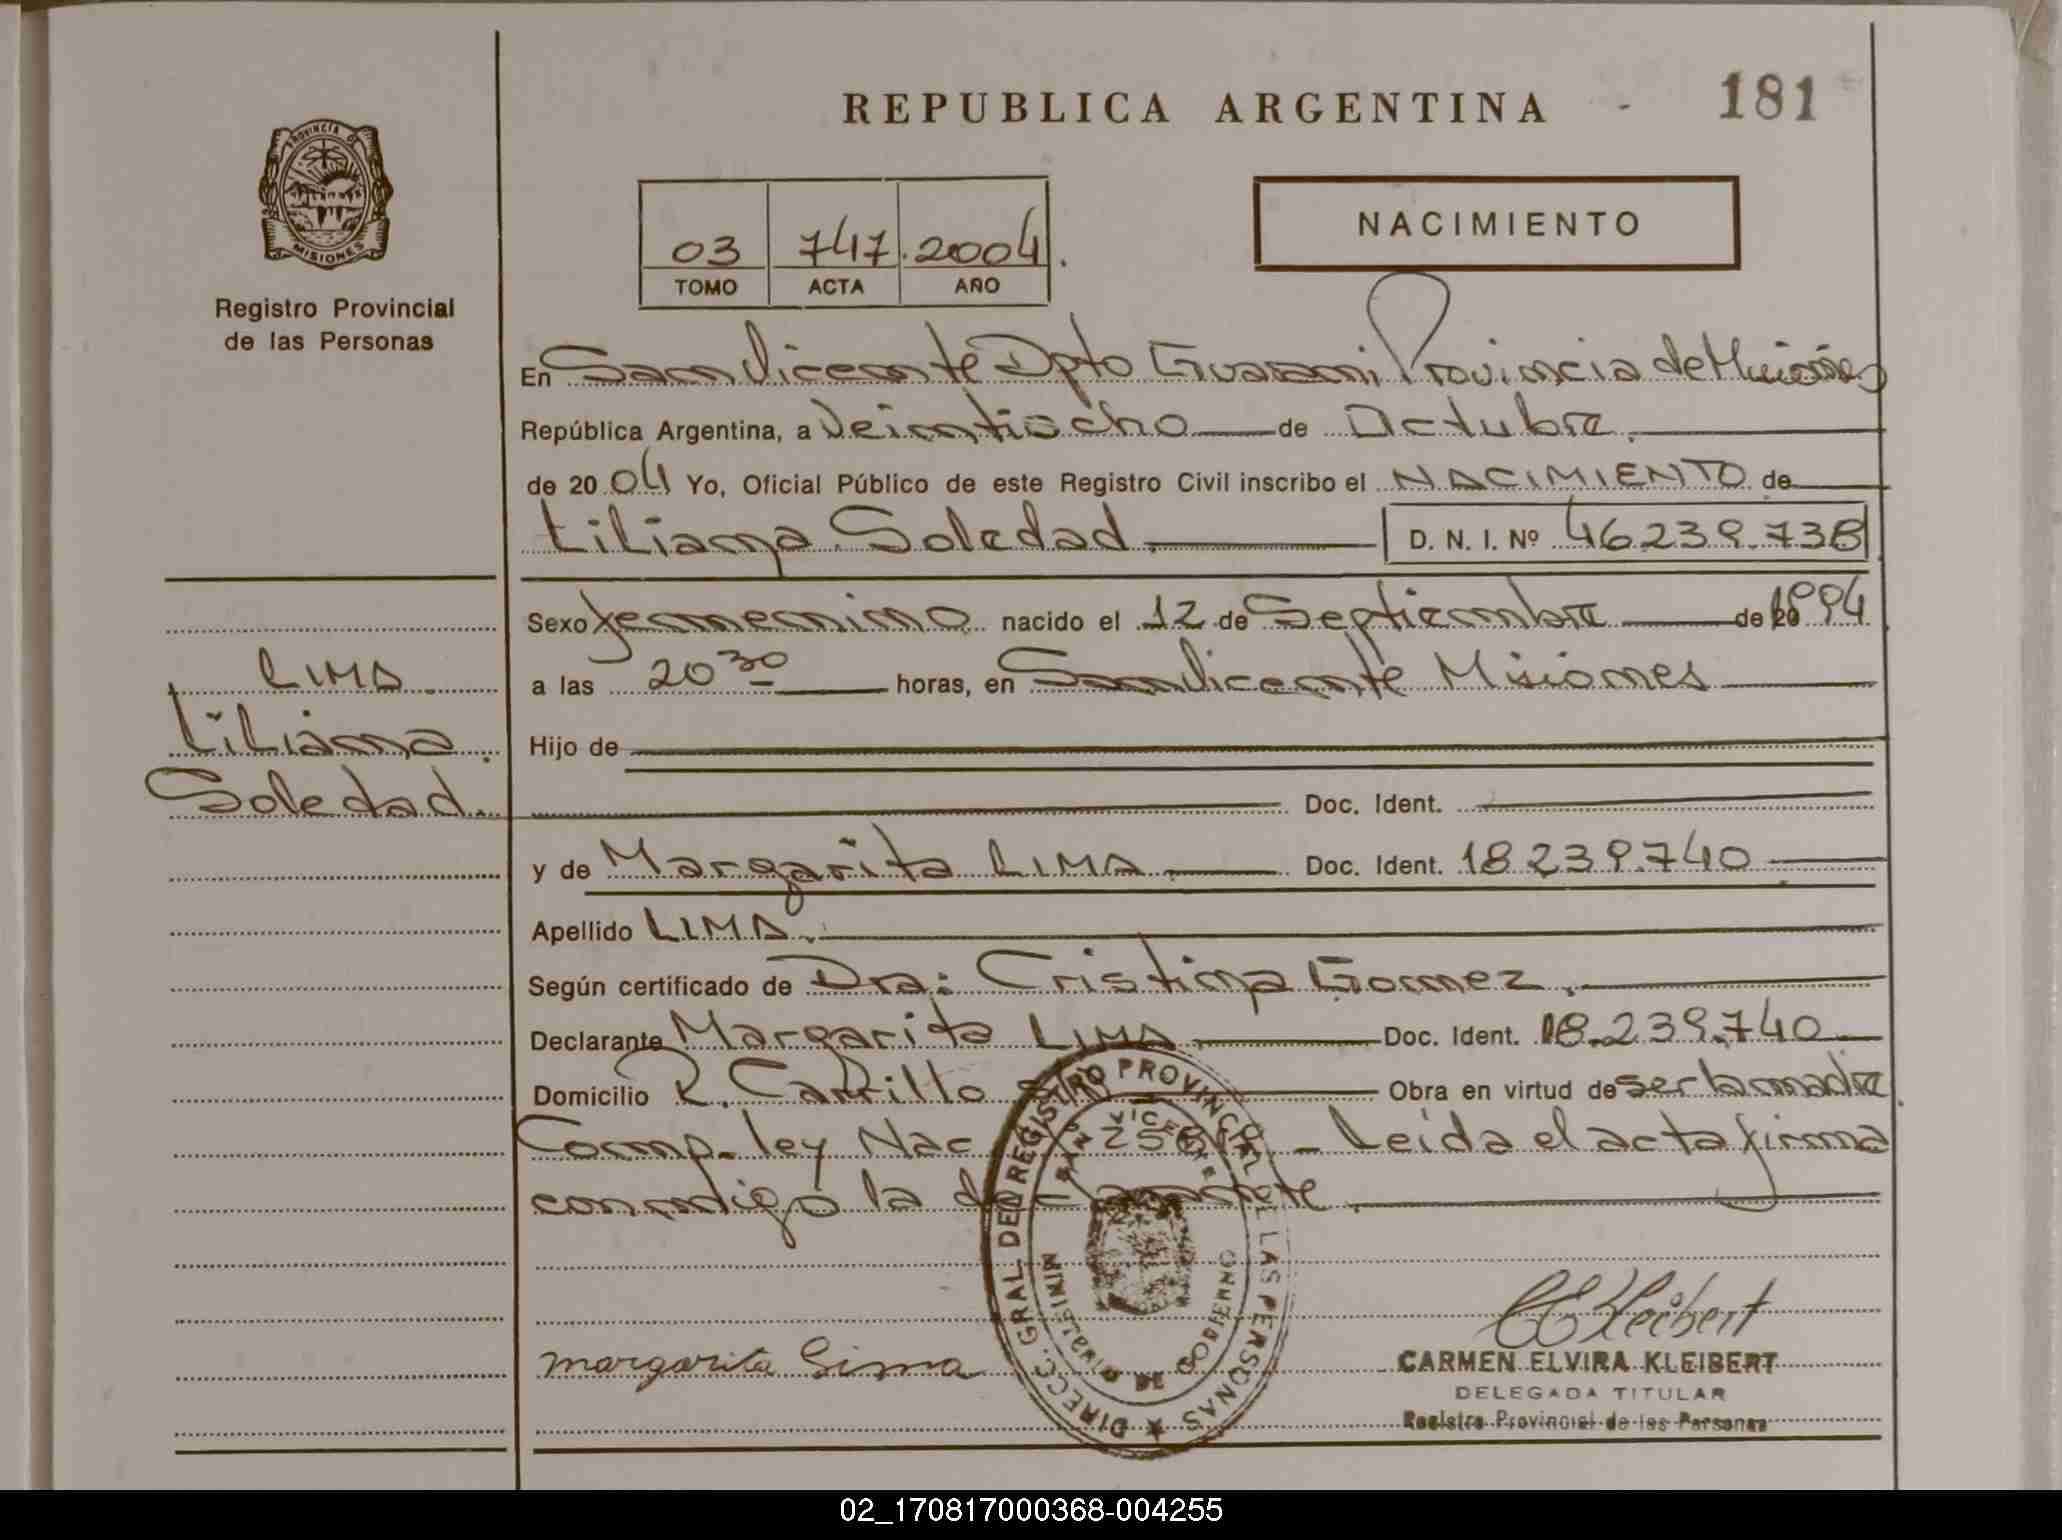 181
REPUBLICA ARGENTINA
PROVINCIA D
MISIONES
Registro Provincial
de las Personas
03 747 2004
TOMO ACTA AÑO
NACIMIENTO
En San Vicente Dpto Guarani Provincia de Misiones
República Argentina, a Veintiocho de Octubre.
de 20 04 Yo, Oficial Público de este Registro Civil inscribo el NACIMIENTO de
Liliana Soledad D. N. I. Nº 46.239.738
Sexo femenino nacido el 12 de Septiembre de 1994
a las 20 30 horas, en San Vicente Misiones
Hijo de
Doc. Ident.
y de Margarita LIMA Doc. Ident. 18.239.740
Apellido LIMA.
Según certificado de Dra: Cristina Gomez.
Declarante Margarita LIMA Doc. Ident. 18.239.740
Domicilio R. Carrillo Obra en virtud de ser la madre
Comp. ley Nac - Leida el acta firma
conmigo la
LIMA
Liliana
Soledad.
DIRECC. GRAL DEL REGISTRO PROVINCIAL DE LAS PERSONAS
SAN VICENTE
MINISTERIO DE GOBIERNO
margarita Lima
CKleibert
CARMEN ELVIRA KLEIBERT
DELEGADA TITULAR
Registro Provincial de las Personas
02_170817000368-004255